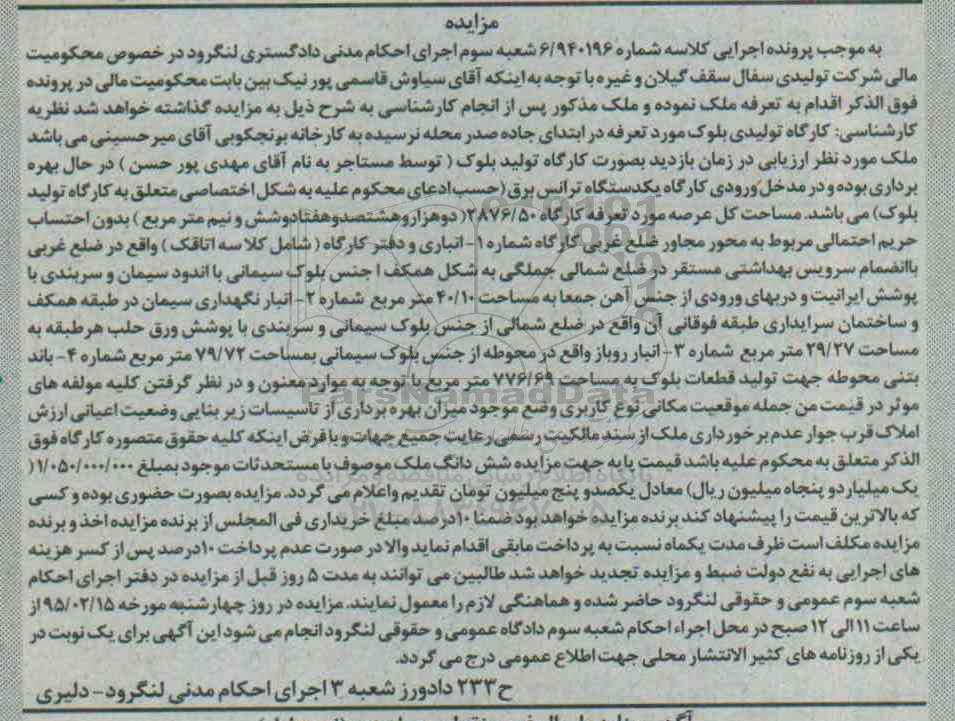 مزایده
به موجب پرونده اجرایی کلاسه شماره ۶/۹۴۰۱۹۶ شعبه سوم اجرای احکام مدنی دادگستری لنگرود در خصوص محکومیت
مالی شرکت تولیدی سفال سقف گیلان و غیره با توجه به اینکه آقای سیاوش قاسمی پور نیک بین بابت محکومیت مالی در پرونده
فوق الذکر اقدام به تعرفه ملک نموده و ملک مذکور پس از انجام کارشناسی به شرح ذیل به مزایده گذاشته خواهد شد نظریه
کارشناسی: کارگاه تولیدی بلوک مورد تعرفه در ابتدای جاده صدر محله نرسیده به کارخانه برنجکوبی آقای میرحسینی می باشد
ملک مورد نظر ارزیابی در زمان بازدید بصورت کارگاه تولید بلوک ( توسط مستاجر به نام آقای مهدی پور حسن ) در حال بهره
برداری بوده و در مدخل ورودی کارگاه یکدستگاه ترانس برق (حسب ادعای محکوم علیه به شکل اختصاصی متعلق به کارگاه تولید
بلوک) می باشد. مساحت کل عرصه مورد تعرفه کارگاه ۲۸۷۶/۵۰( دوهزار وهشتصدو هفتادوشش و نیم متر مربع ) بدون احتساب
حریم احتمالی مربوط به محور مجاور ضلع غربی کارگاه شماره ۱- انباری و دفتر کارگاه ( شامل کلا سه اتاقک ) واقع در ضلع غربی
باانضمام سرویس بهداشتی مستقر در ضلع شمالی جملگی به شکل همکف ا جنس بلوک سیمانی با اندود سیمان و سربندی با
پوشش ایرانیت و دربهای ورودی از جنس آهن جمعا به مساحت ۴۰/۱۰ متر مربع شماره ۲- انبار نگهداری سیمان در طبقه همکف
و ساختمان سرایداری طبقه فوقانی آن واقع در ضلع شمالی از جنس بلوک سیمانی و سربندی با پوشش ورق حلب هر طبقه به
مساحت ۲۹/۲۷ متر مربع شماره ۳- انبار روباز واقع در محوطه از جنس بلوک سیمانی بمساحت ۷۹/۷۲ متر مربع شماره ۴- باند
بتنی محوطه جهت تولید قطعات بلوک به مساحت ۷۷۶/۶۹ متر مربع با توجه به موارد معنون و در نظر گرفتن کلیه مولفه های
موثر در قیمت من جمله موقعیت مکانی نوع کاربری وضع موجود میزان بهره برداری از تاسیسات زیر بنایی وضعیت اعیانی ارزش
املاک قرب جوار عدم برخورداری ملک از سند مالکیت رسمی رعایت جمیع جهات و با فرض اینکه کلیه حقوق متصوره کارگاه فوق
الذکر متعلق به محکوم علیه باشد قیمت پایه جهت مزایده شش دانگ ملک موصوف با مستحدثات موجود بمبلغ ۱/۰۵۰/۰۰۰/۰۰۰(
یک میلیارد و پنجاه میلیون ریال) معادل یکصدو پنج میلیون تومان تقدیم واعلام می گردد. مزایده بصورت حضوری بوده و کسی
که بالاترین قیمت را پیشنهاد کند برنده مزایده خواهد بود ضمنا ۱۰درصد مبلغ خریداری فی المجلس از برنده مزایده اخذ و برنده
مزایده مکلف است ظرف مدت یکماه نسبت به پرداخت مابقی اقدام نماید والا در صورت عدم پرداخت ۱۰درصد پس از کسر هزینه
های اجرایی به نفع دولت ضبط و مزایده تجدید خواهد شد طالبین می توانند به مدت ۵ روز قبل از مزایده در دفتر اجرای احکام
شعبه سوم عمومی و حقوقی لنگرود حاضر شده و هماهنگی لازم را معمول نمایند. مزایده در روز چهارشنبه مورخه ۹۵/۰۲/۱۵ از
ساعت ۱۱الی ۱۲ صبح در محل اجراء احکام شعبه سوم دادگاه عمومی و حقوقی لنگرود انجام می شود این آگهی برای یک نوبت در
یکی از روزنامه های کثیر الانتشار محلی جهت اطلاع عمومی درج می گردد.
ح۲۳۳ دادورز شعبه ۳ اجرای احکام مدنی لنگرود- دلیری
ParsNamadData